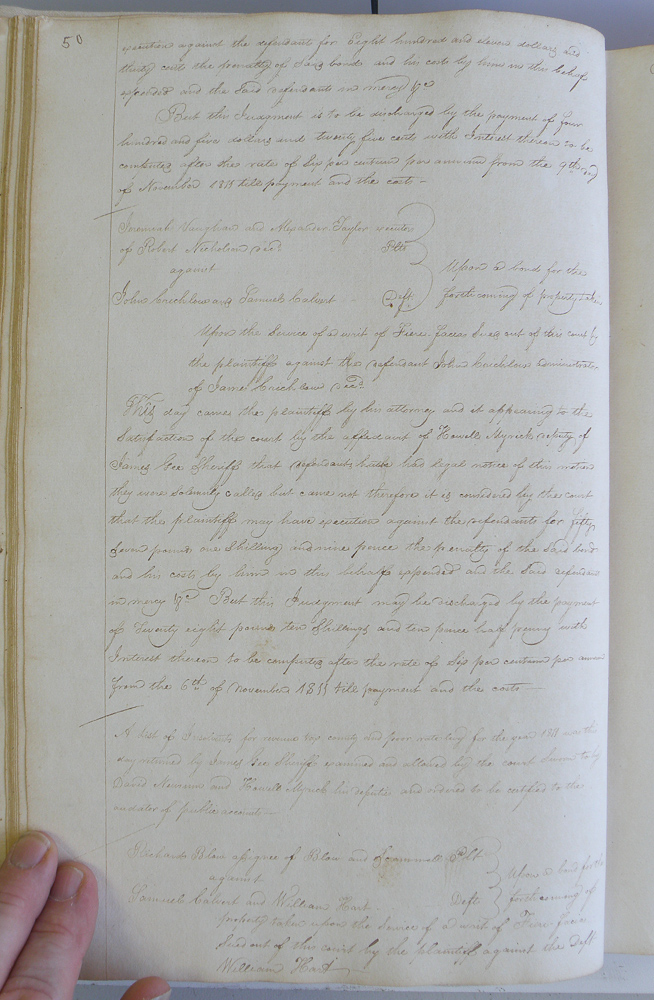 50
execution against the defendant for Eight hundred and eleven dollars and
thirty cents the penalty of Said bond and his costs by him in this behalf
expended and the Said defendants in mercy &c
But this Judgment is to be discharged by the payment of four
hundred and five dollars and twenty five cents with Interest thereon to be
computed after the rate of Six per centum per annum from the 9th day
of November 1811 till payment and the costs —
Jeremiah Vaughan and Alexander Taylor executor
of Robert Nicholson decd Plts
against
Upon a bond for the
John Crichlow and Samuel Calvert Deft
forthcoming of property taken
Upon the Service of a writ of Fiere facias Sued out of this court by
the plaintiffs against the defendant John Crichlow administrator
of James Crichlow decd
This day came the plaintiff by his attorney and it appearing to the
Satisfaction of the court by the affidavit of Howell Myrick deputy of
James Gee Sheriff that defendants had legal notice of this motion
they were Solemnly called but came not therefore it is considered by the court
that the plaintiff may have execution against the defendants for fifty
Seven pounds one Shilling and nine pence the penalty of the Said bond
and his costs by him in this behalf expended and the Said defendants
in mercy &c But this Judgment may be discharged by the payment
of Twenty eight pounds ten Shillings and ten pence half penny with
Interest thereon to be computed after the rate of Six per centum per annum
from the 6th of November 1811 till payment and the costs —
A list of Insolvents for revenue tax county and poor rate levy for the year 1811 was this
day returned by James Gee Sheriff examined and allowed by the court Sworn to by
David Newsum and Howell Myrick his deputies and ordered to be certified to the
auditor of public accounts —
Richard Blow assignee of Blow and Scammell Plt
against
Upon a bond for the
Samuel Calvert and William Hart Deft
forthcoming of
property taken upon the Service of a writ of Fiere facias
Sued out of this court by the plaintiff against the Deft
William Hart —